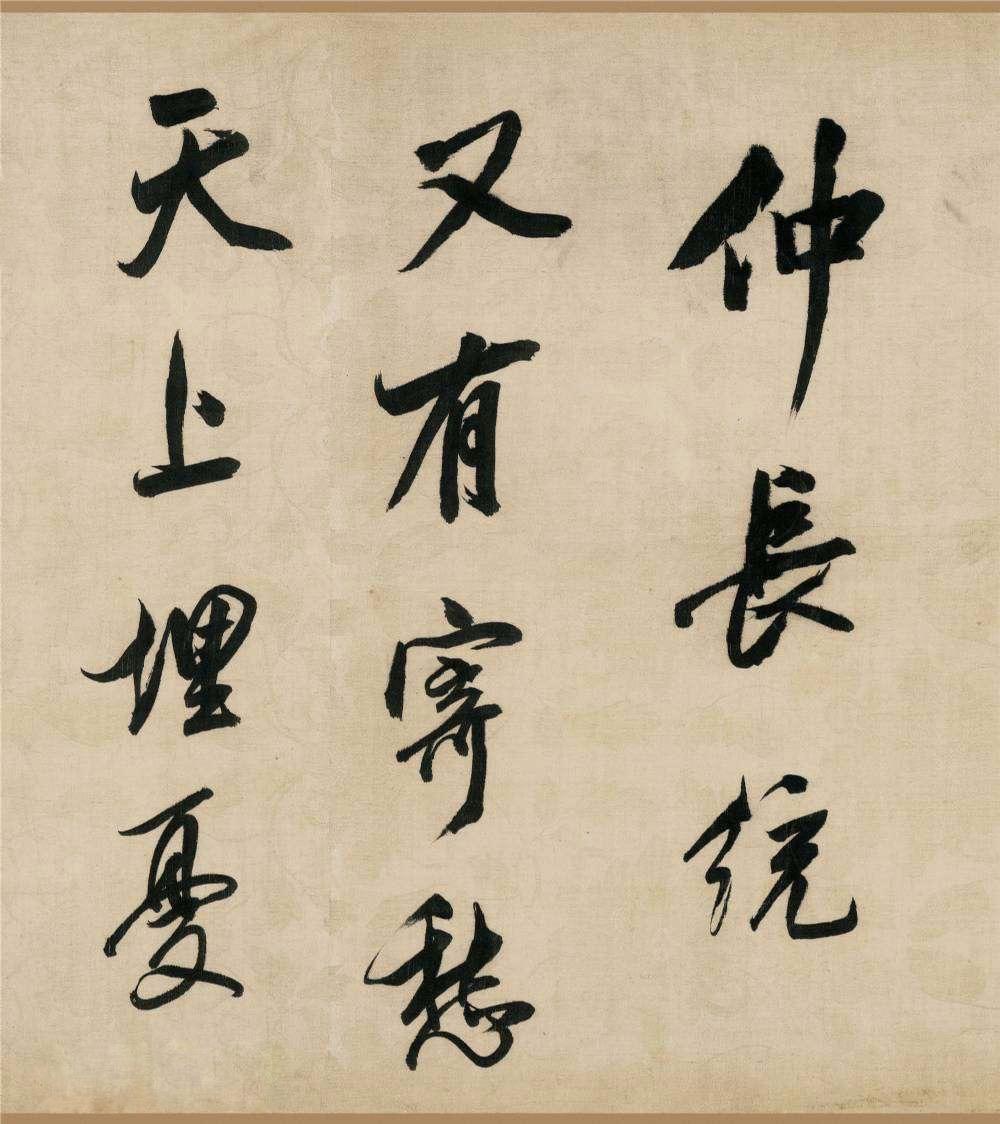 仲長統
又有寄愁
天上埋憂